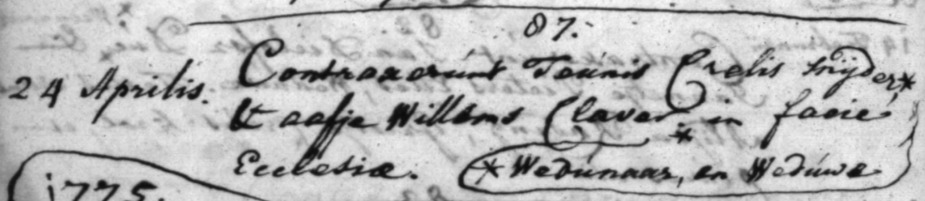 87.
24 Aprilis. Contraxerunt Teunis Crelis Snijder*
Et aafje Willems Claver * in facie
Ecclesiæ. *Wedúnaar, en Wedúwe
1775.